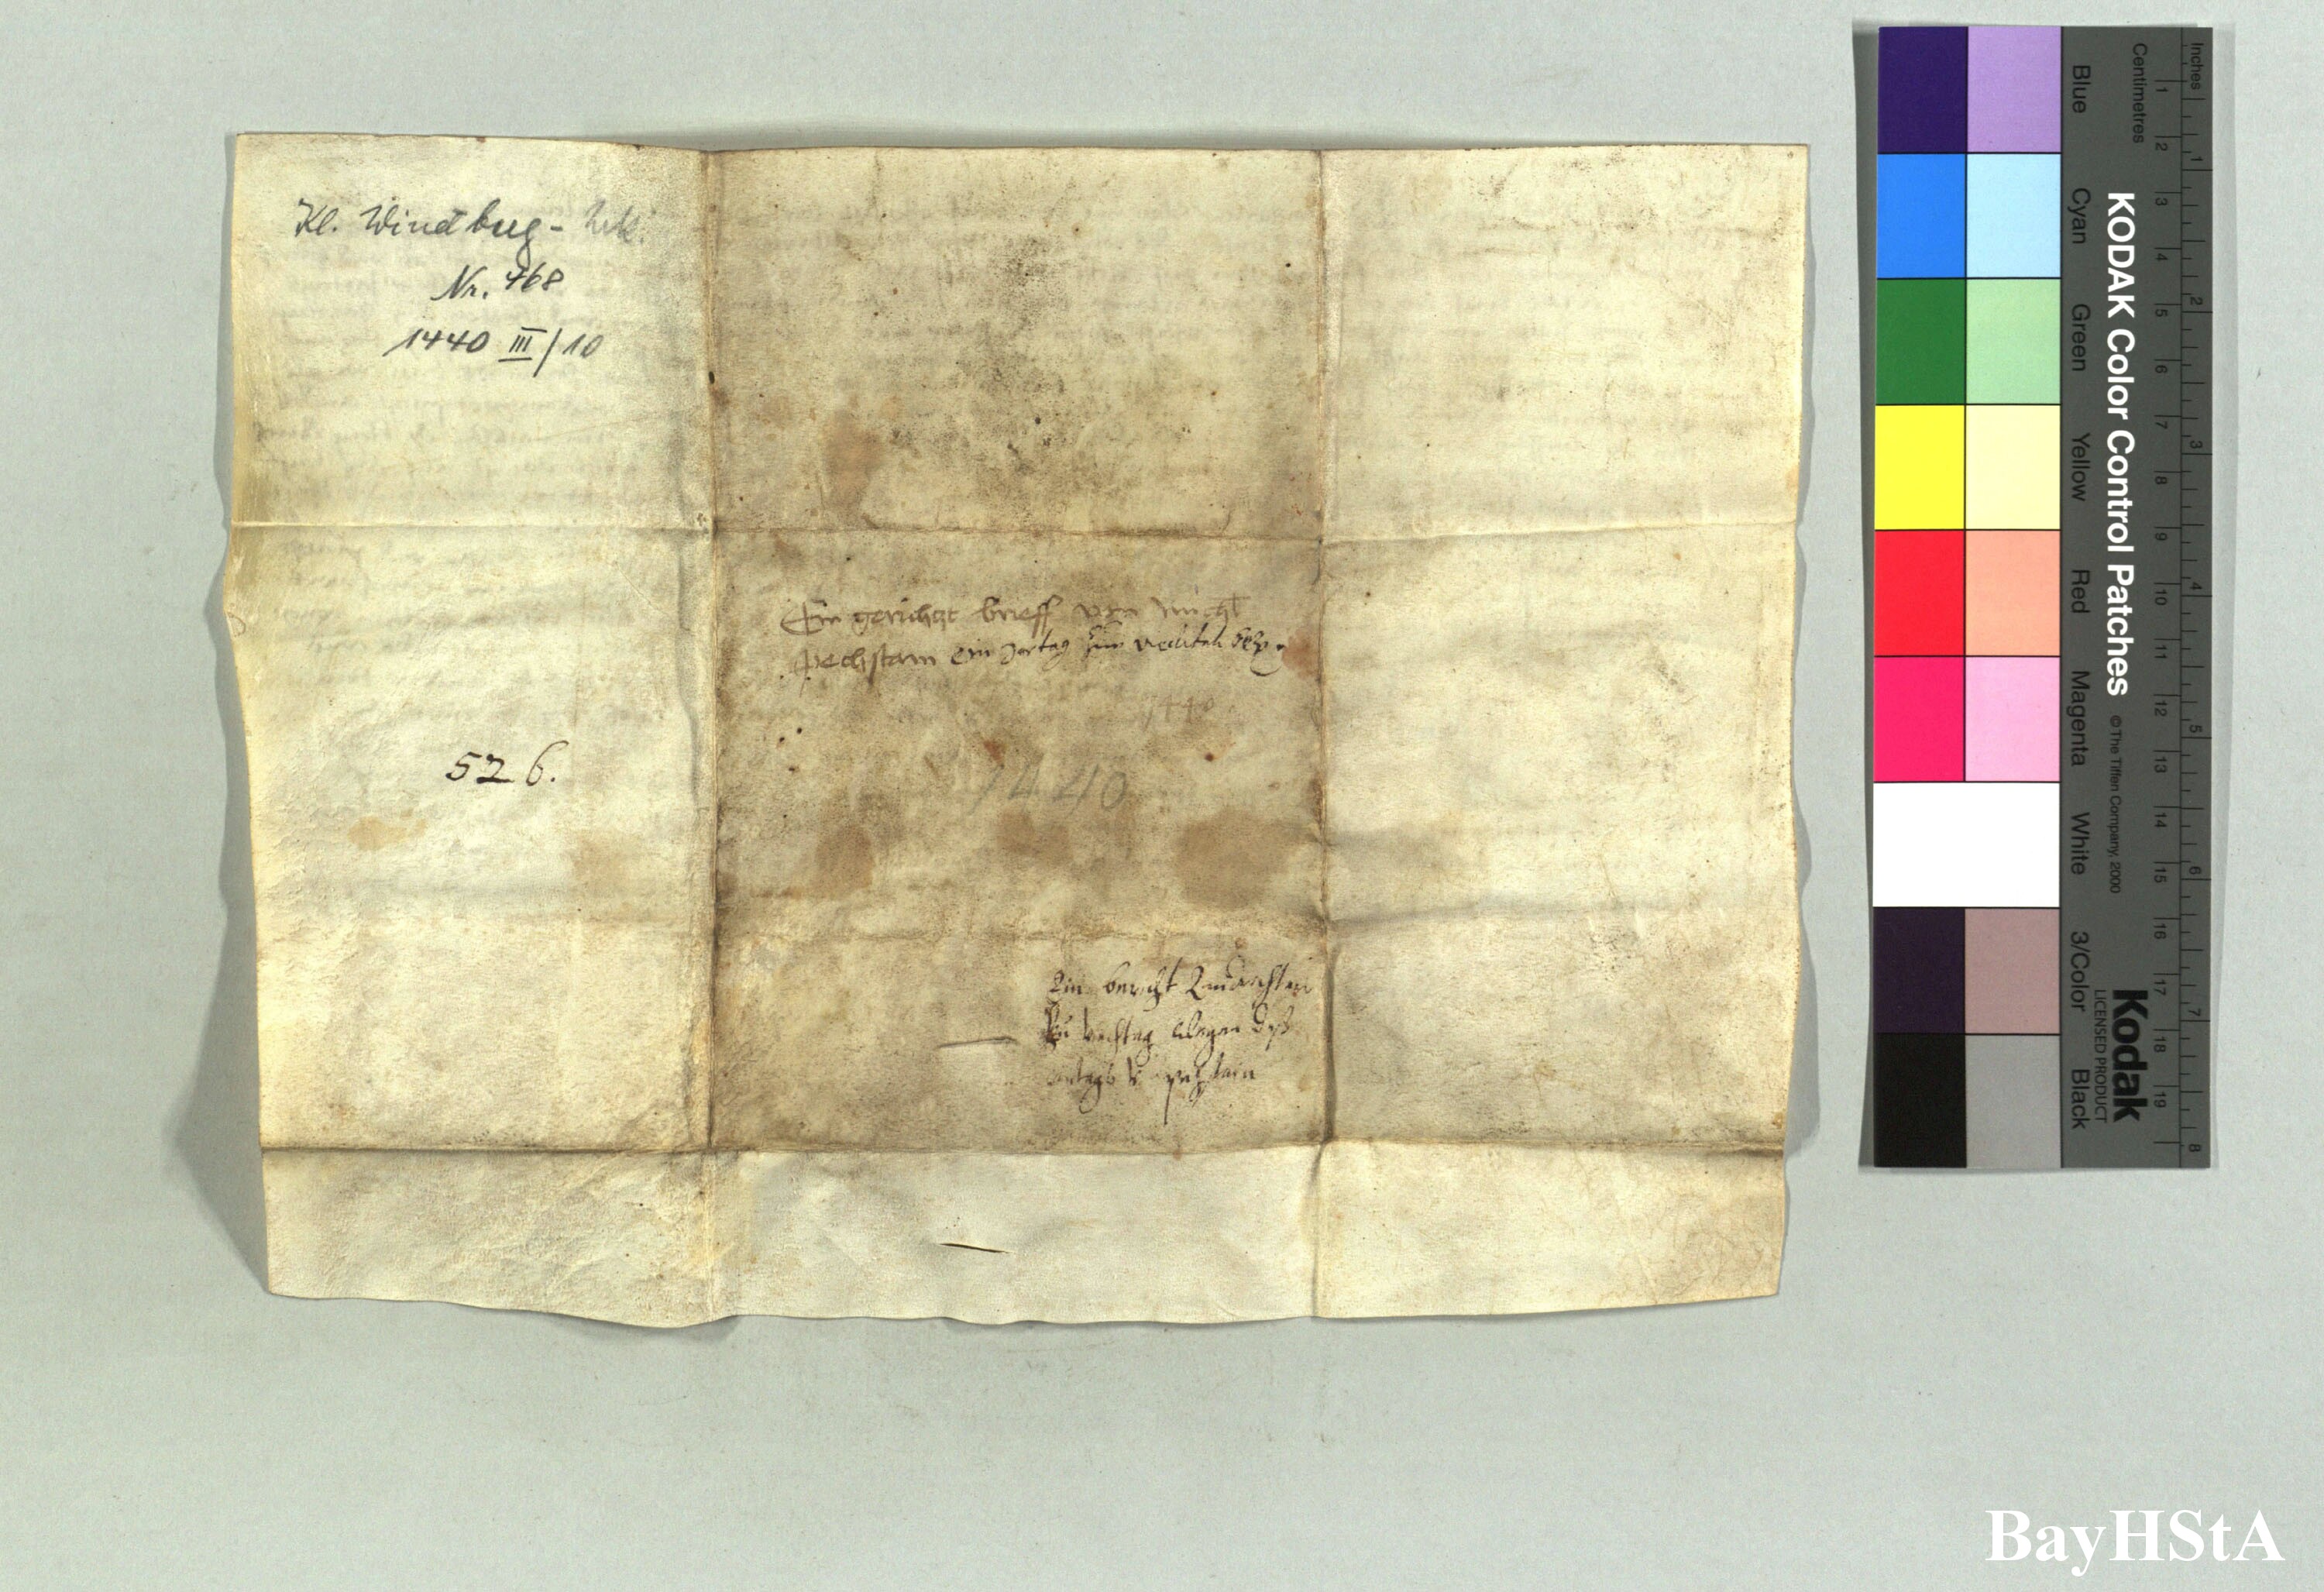 Kl. Windberg - Urk.
Nr. 468
1440 III/10
Ein gerichtz brieff von
pechstain ein Jartag zum
1440
526.
1440
Ein bericht
zu wegen deß
BayHStA
KODAK Color Control Patches
© The Tiffen Company, 2000
Kodak
LICENSED PRODUCT
Inches
1 2 3 4 5 6 7 8
Centimetres
1 2 3 4 5 6 7 8 9 10 11 12 13 14 15 16 17 18 19
Blue
Cyan
Green
Yellow
Red
Magenta
White
3/Color
Black